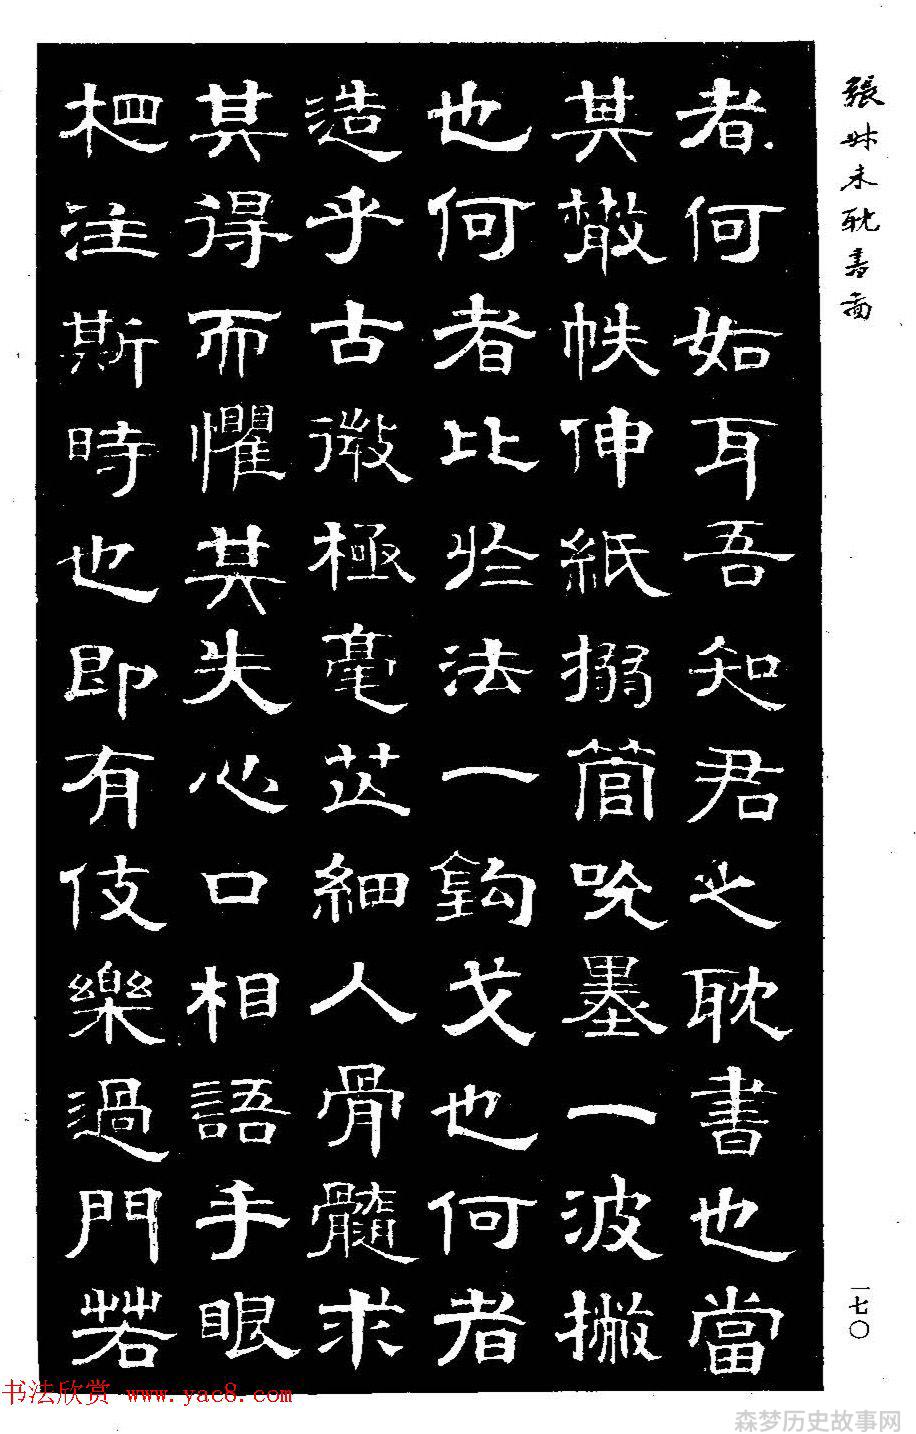 張叔未耽書啚
者何如耳吾知君之耽書也當
其散帙伸紙搦管吮墨一波撇
也何者比於法一鈎戈也何者
造乎古微極毫芒細人骨髓求
其得而懼其失心口相語手眼
注斯時也即有伎樂過門若
一七〇
书法欣赏 www.yac8.com
森梦历史故事网